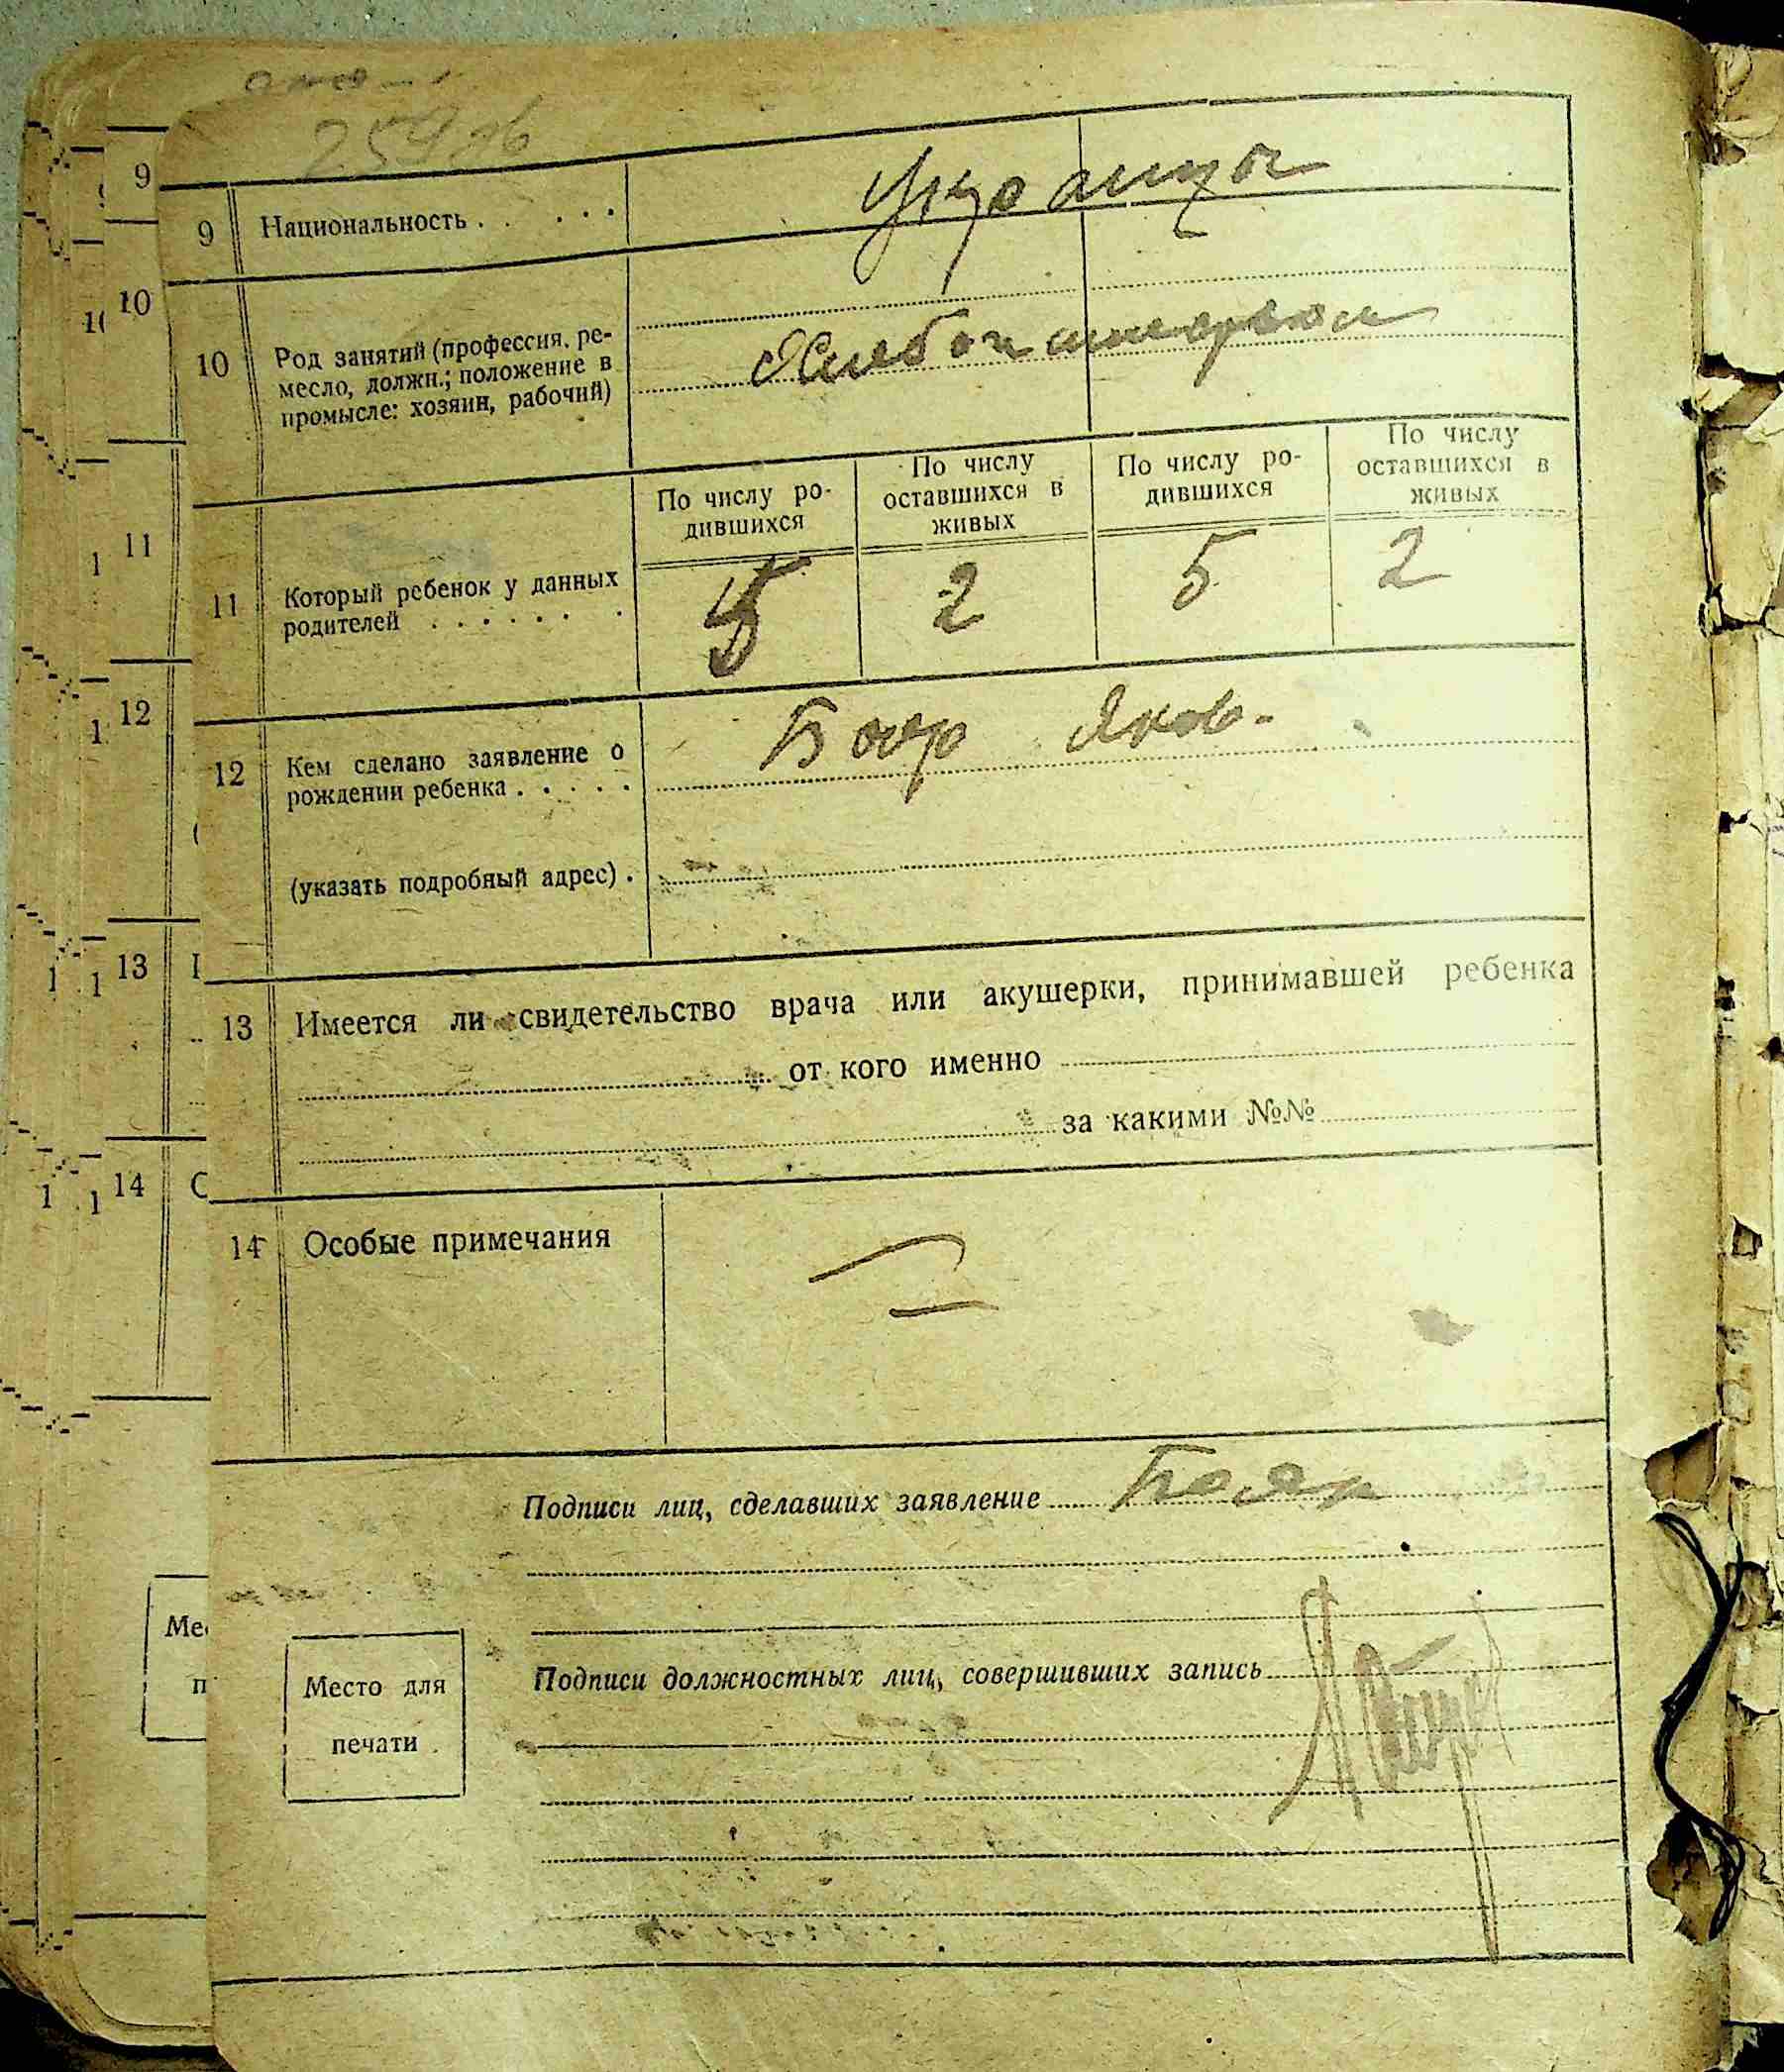 9 Национальность . . . . . Украинцы
10 Род занятий (профессия, ре-
месло, должн.; положение в
промысле: хозяин, рабочий)
По числу ро-
дившихся
По числу
оставшихся в
живых
По числу ро-
дившихся
По числу
оставшихся в
живых
11 Который ребенок у данных
родителей . . . . . . .
5 2 5 2
12 Кем сделано заявление о
рождении ребенка . . . . .
Яков.
(указать подробный адрес) .
13 Имеется ли свидетельство врача или акушерки, принимавшей ребенка
от кого именно
за какими №№
14 Особые примечания
Подписи лиц, сделавших заявление Бояр
Подписи должностных лиц, совершивших запись
Место для
печати
9
10
11
12
13
14